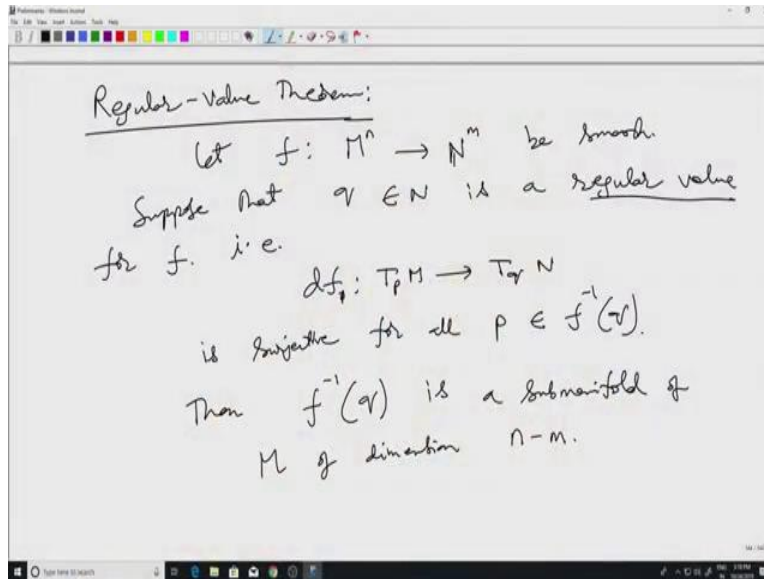 Preliminaries - Windows Journal
File Edit View Insert Actions Tools Help
B
Regular-Value Theorem:
Let f: Mⁿ → Nᵐ be smooth.
Suppose that q ∈ N is a regular value
for f. i.e.
df_p: T_p M → T_q N
is surjective for all p ∈ f⁻¹(q).
Then f⁻¹(q) is a submanifold of
M of dimension n-m.
Type here to search
ENG
IN